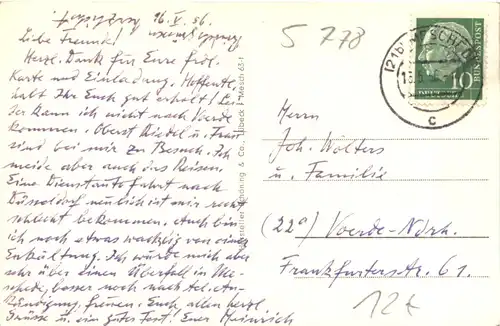 16. V. 56.
Liebe Freunde!
Herzl. Dank für Eure frdl.
Karte und Einladung. Hoffentl.
habt Ihr Euch gut erholt! Lei-
der kann ich nicht nach Voerde
kommen. Oberst Riedel u. Frau
sind bei mir zu Besuch. Ich
meide aber auch das Reisen.
Eine Dienstautofahrt nach
Düsseldorf neulich ist mir recht
schlecht bekommen. Auch bin
ich noch etwas wackelig von einer
Erkältung. Ich würde mich aber
sehr über Einen Überfall in Me-
schede, besser noch nach tel. An-
kündigung, freuen. Euch allen herzl.
Grüsse u. ein gutes Fest! Euer Heinrich
Schöning & Co., Lübeck
S 778
(21b) MESCHEDE
c
10
DEUTSCHE
BUNDESPOST
Herrn
Joh. Wolters
u. Familie
(22a) Voerde-Ndrh.
Frankfurterstr. 61.
12t